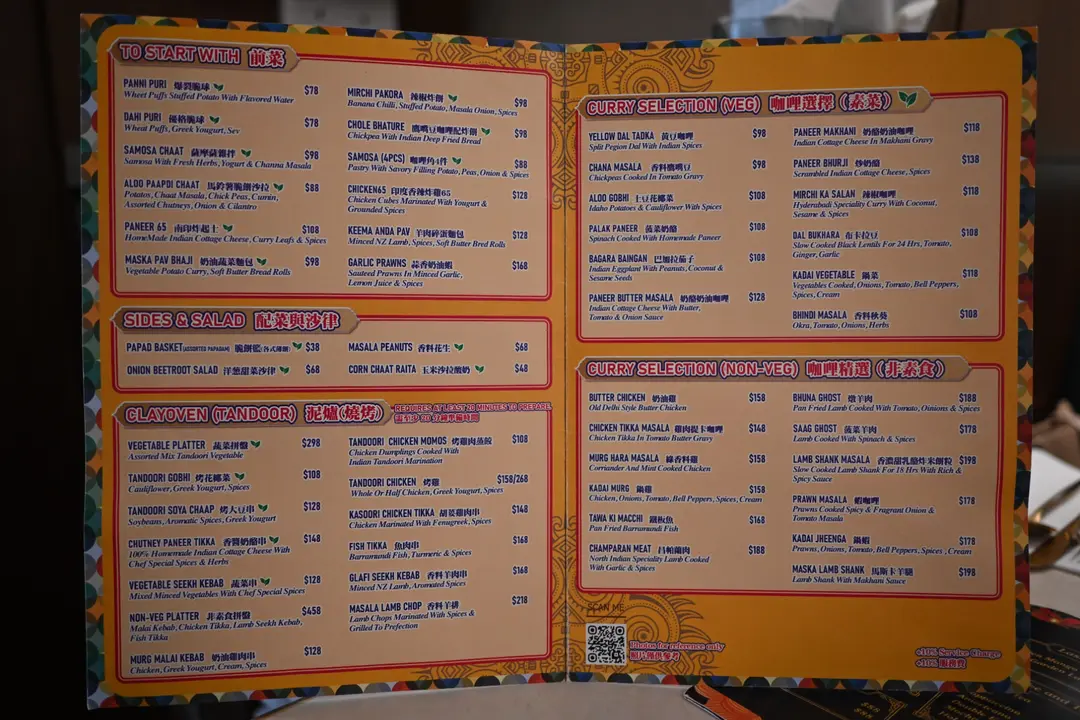 TO START WITH 前菜
PANNI PURI 爆裂脆球 $78
Wheet Puffs Stuffed Potato With Flavored Water
DAHI PURI 優格脆球 $78
Wheat Puffs, Greek Yougurt, Sev
SAMOSA CHAAT 薩摩薩雜拌 $98
Samosa With Fresh Herbs, Yogurt & Channa Masala
ALOO PAAPDI CHAAT 馬鈴薯脆餅沙拉 $88
Potatos, Chaat Masala, Chick Peas, Cumin,
Assorted Chutneys, Onion & Cilantro
PANEER 65 南印炸起士 $108
HomeMade Indian Cottage Cheese, Curry Leafs & Spices
MASKA PAV BHAJI 奶油蔬菜麵包 $98
Vegetable Potato Curry, Soft Butter Bread Rolls
MIRCHI PAKORA 辣椒炸餅 $98
Banana Chilli, Stuffed Potato, Masala Onion, Spices
CHOLE BHATURE 鷹嘴豆咖哩配炸餅 $98
Chickpea With Indian Deep Fried Bread
SAMOSA (4PCS) 咖哩角4件 $88
Pastry With Savory Filling Potato, Peas, Onion & Spices
CHICKEN65 印度香辣炸雞65 $128
Chicken Cubes Marinated With Yougurt &
Grounded Spices
KEEMA ANDA PAV 羊肉碎蛋麵包 $128
Minced NZ Lamb, Spices, Soft Butter Bred Rolls
GARLIC PRAWNS 蒜香奶油蝦 $168
Sauteed Prawns In Minced Garlic,
Lemon Juice & Spices
SIDES & SALAD 配菜與沙律
PAPAD BASKET(ASSORTED PAPADAM) 脆餅籃(各式薄餅) $38
ONION BEETROOT SALAD 洋葱甜菜沙律 $68
MASALA PEANUTS 香料花生 $68
CORN CHAAT RAITA 玉米沙拉酸奶 $48
CLAYOVEN (TANDOOR) 泥爐(燒烤)
REQUIRES AT LEAST 20 MINUTES TO PREPARE.
需至少 20 分鐘準備時間
VEGETABLE PLATTER 蔬菜拼盤 $298
Assorted Mix Tandoori Vegetable
TANDOORI GOBHI 烤花椰菜 $108
Cauliflower, Greek Yogurt, Spices
TANDOORI SOYA CHAAP 烤大豆串 $128
Soybeans, Aromatic Spices, Greek Yogurt
CHUTNEY PANEER TIKKA 香醬奶酪串 $148
100% Homemade Indian Cottage Cheese With
Chef Special Spices & Herbs
VEGETABLE SEEKH KEBAB 蔬菜串 $128
Mixed Minced Vegetables With Chef Special Spices
NON-VEG PLATTER 非素食拼盤 $458
Malai Kebab, Chicken Tikka, Lamb Seekh Kebab,
Fish Tikka
MURG MALAI KEBAB 奶油雞肉串 $128
Chicken, Greek Yogurt, Cream, Spices
TANDOORI CHICKEN MOMOS 烤雞肉蒸餃 $108
Chicken Dumplings Cooked With
Indian Tandoori Marination
TANDOORI CHICKEN 烤雞 $158/268
Whole Or Half Chicken, Greek Yogurt, Spices
KASOORI CHICKEN TIKKA 胡荽雞肉串 $148
Chicken Marinated With Fenugreek, Spices
FISH TIKKA 魚肉串 $168
Barramundi Fish, Turmeric & Spices
GLAFI SEEKH KEBAB 香料羊肉串 $168
Minced NZ Lamb, Aromated Spices
MASALA LAMB CHOP 香料羊排 $218
Lamb Chops Marinated With Spices &
Grilled To Prefection
CURRY SELECTION (VEG) 咖哩選擇（素菜）
YELLOW DAL TADKA 黃豆咖哩 $98
Split Pegion Dal With Indian Spices
CHANA MASALA 香料鷹嘴豆 $98
Chickpeas Cooked In Tomato Gravy
ALOO GOBHI 土豆花椰菜 $108
Idaho Potatoes & Cauliflower With Spices
PALAK PANEER 菠菜奶酪 $108
Spinach Cooked With Homemade Paneer
BAGARA BAINGAN 巴加拉茄子 $108
Indian Eggplant With Peanuts, Coconut &
Sesame Seeds
PANEER BUTTER MASALA 奶酪奶油咖哩 $128
Indian Cottage Cheese With Butter,
Tomato & Onion Sauce
PANEER MAKHANI 奶酪奶油咖哩 $118
Indian Cottage Cheese In Makhani Gravy
PANEER BHURJI 炒奶酪 $138
Scrambled Indian Cottage Cheese, Spices
MIRCHI KA SALAN 辣椒咖哩 $118
Hyderabadi Speciality Curry With Coconut,
Sesame & Spices
DAL BUKHARA 布卡拉豆 $108
Slow Cooked Black Lentils For 24 Hrs, Tomato,
Ginger, Garlic
KADAI VEGETABLE 鍋菜 $118
Vegetables Cooked, Onions, Tomato, Bell Peppers,
Spices, Cream
BHINDI MASALA 香料秋葵 $108
Okra, Tomato, Onions, Herbs
CURRY SELECTION (NON-VEG) 咖哩精選（非素食）
BUTTER CHICKEN 奶油雞 $158
Old Delhi Style Butter Chicken
CHICKEN TIKKA MASALA 雞肉提卡咖哩 $148
Chicken Tikka In Tomato Butter Gravy
MURG HARA MASALA 綠香料雞 $158
Corriander And Mint Cooked Chicken
KADAI MURG 鍋雞 $158
Chicken, Onions, Tomato, Bell Peppers, Spices, Cream
TAWA KI MACCHI 鐵板魚 $168
Pan Fried Barramundi Fish
CHAMPARAN MEAT 昌帕蘭肉 $188
North Indian Speciality Lamb Cooked
With Garlic & Spices
BHUNA GHOST 燉羊肉 $188
Pan Fried Lamb Cooked With Tomato, Onions & Spices
SAAG GHOST 菠菜羊肉 $178
Lamb Cooked With Spinach & Spices
LAMB SHANK MASALA 香濃甜乳酪炸米餅粒 $198
Slow Cooked Lamb Shank For 18 Hrs With Rich &
Spicy Sauce
PRAWN MASALA 蝦咖哩 $178
Prawns Cooked Spicy & Fragrant Onion &
Tomato Masala
KADAI JHEENGA 鍋蝦 $178
Prawns, Onions, Tomato, Bell Peppers, Spices , Cream
MASKA LAMB SHANK 馬斯卡羊腿 $198
Lamb Shank With Makhani Sauce
SCAN ME
Photos for reference only
照片僅供參考
+10% Service Charge
+10% 服務費